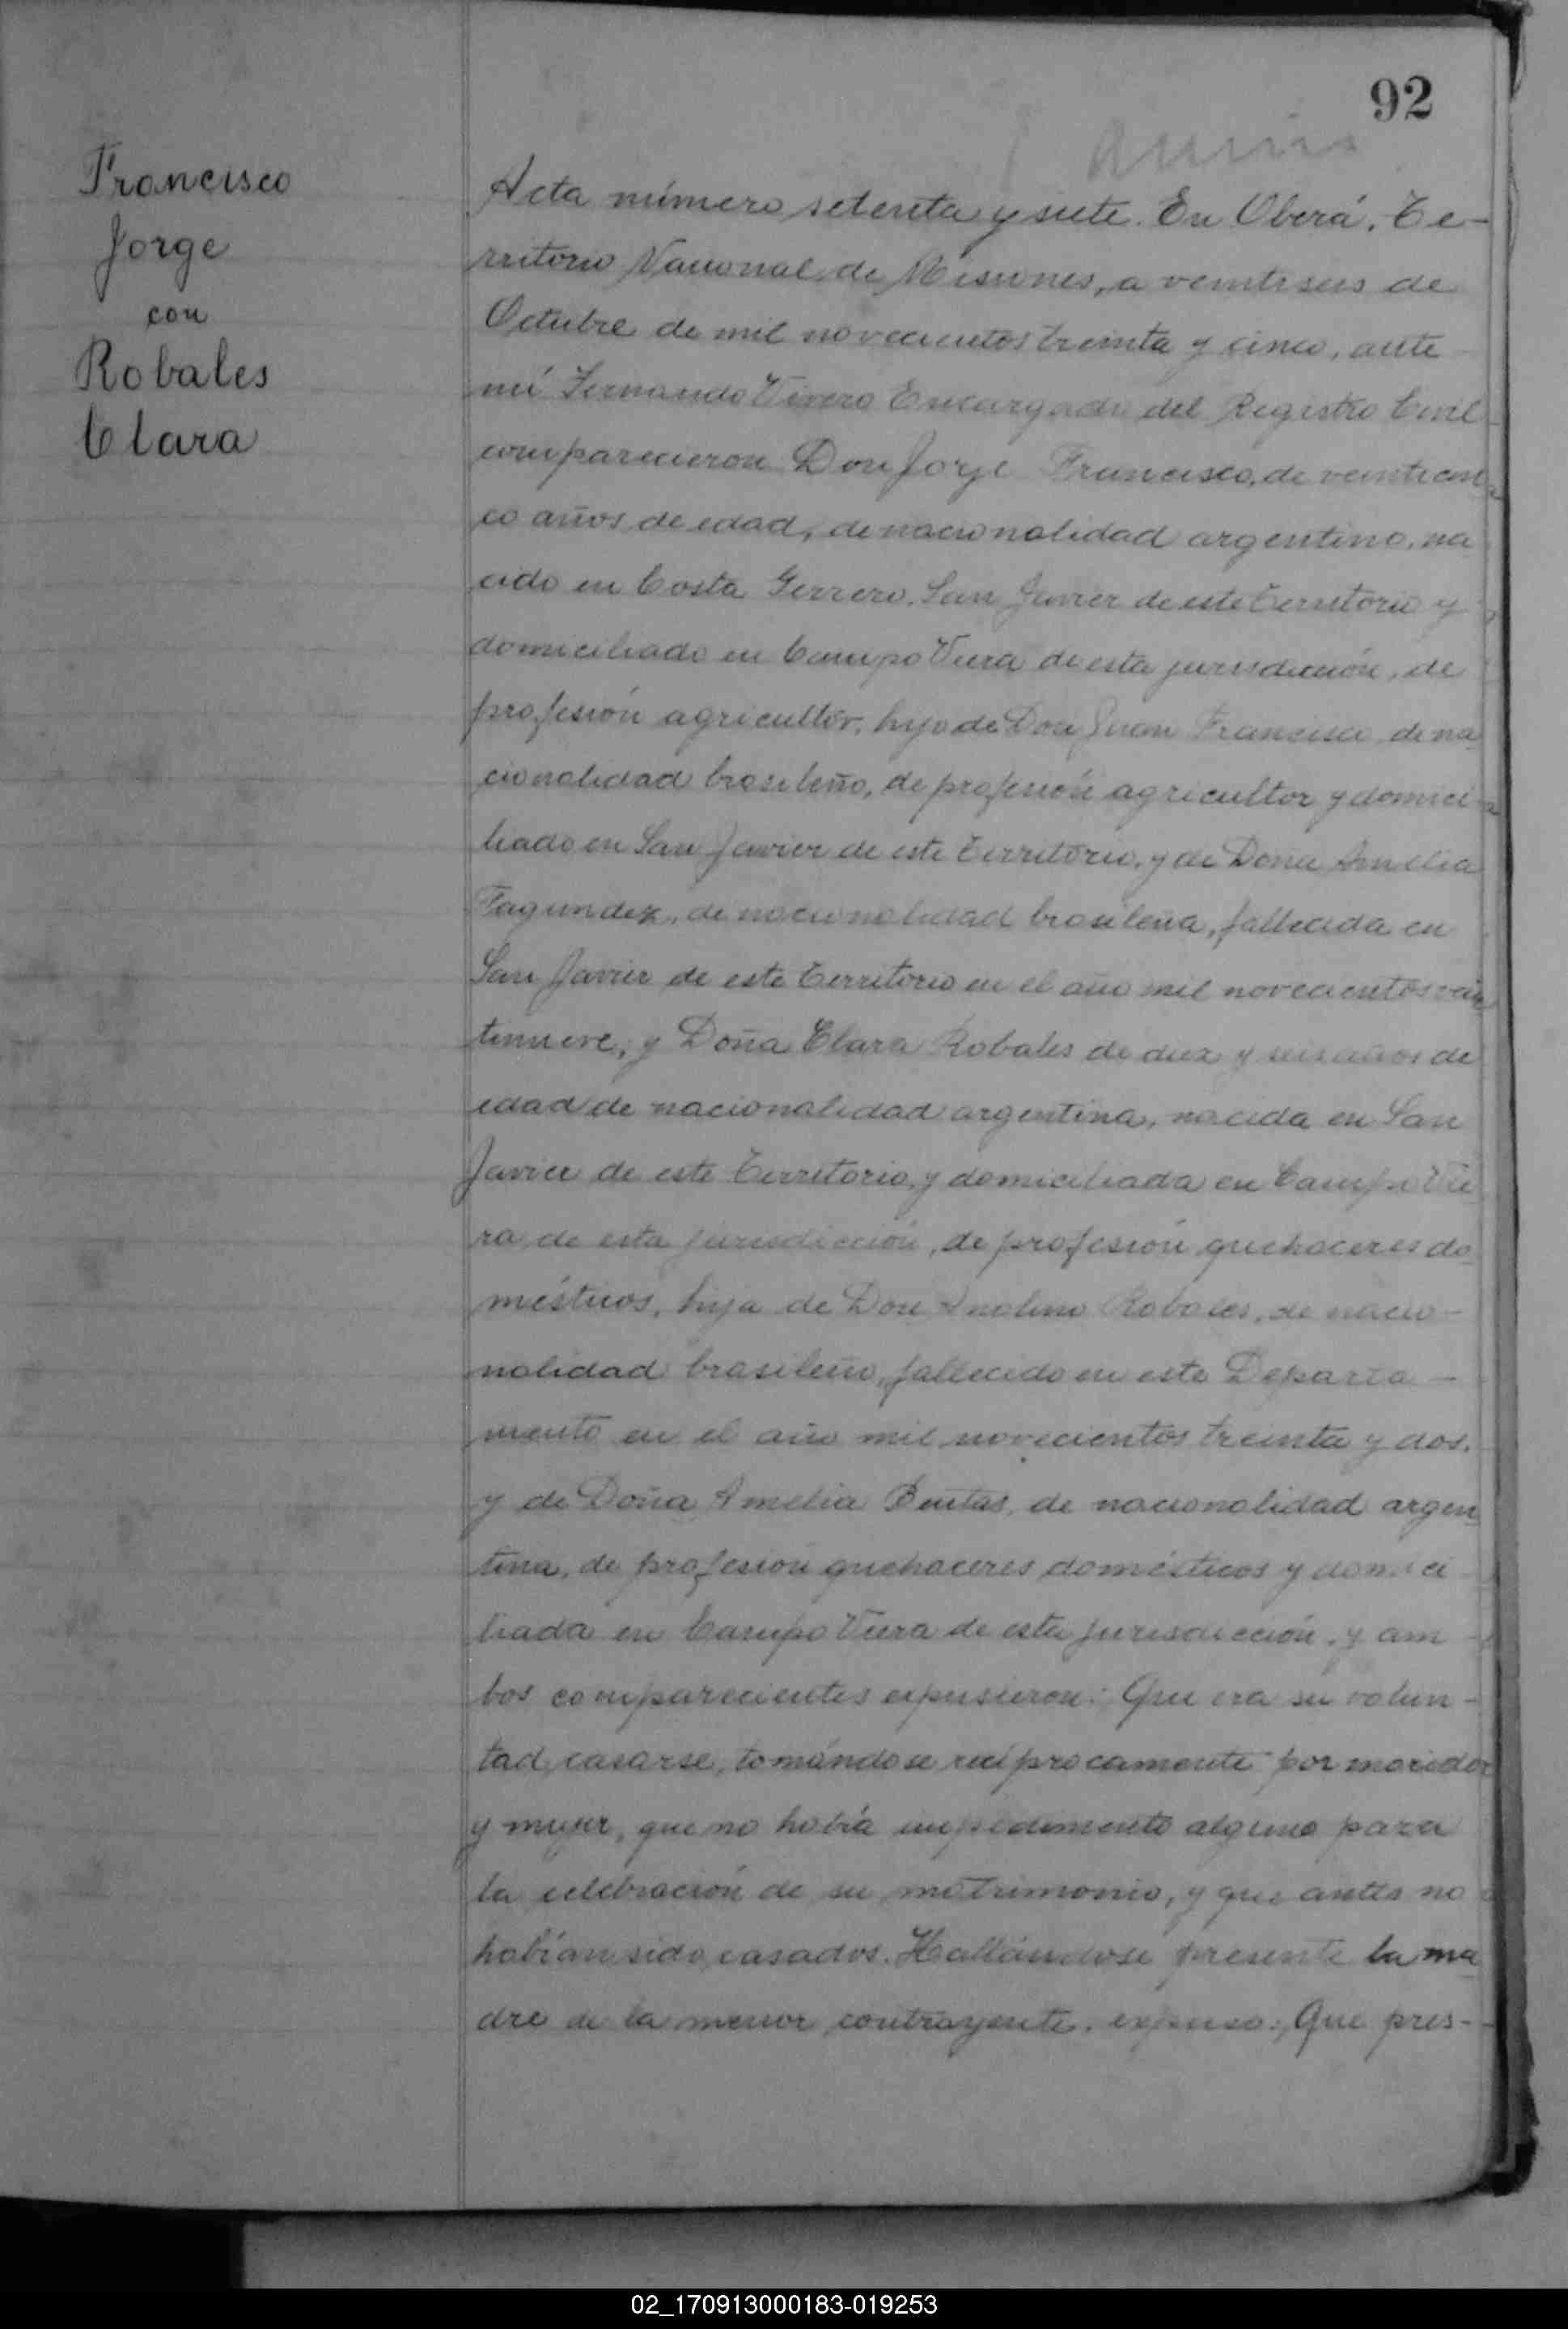 92
Francisco
Jorge
con
Robales
Clara
Acta número setenta y siete. En Oberá, Te-
rritorio Nacional de Misiones, a veintiseis de
Octubre de mil novecientos treinta y cinco, ante
mí Fernando Vivero Encargado del Registro Civil
comparecieron Don Jorge Francisco, de veinticin
co años de edad, de nacionalidad argentino, na
cido en Costa Gerrero, San Javier de este Territorio y
domiciliado en Campo Viera de esta jurisdicción, de
profesión agricultor, hijo de Don Juan Francisco, de na
cionalidad brasileño, de profesión agricultor y domici
liado en San Javier de este Territorio, y de Dona Amelia
Fagundez, de nacionalidad brasileña, fallecida en
San Javier de este Territorio en el año mil novecientos vein
tinueve; y Doña Clara Robales de diez y seis años de
edad de nacionalidad argentina, nacida en San
Javier de este Territorio, y domiciliada en Campo Vie
ra de esta jurisdicción, de profesión quehaceres do
mésticos, hija de Don Robales, de nacio-
nalidad brasileño, fallecido en este Departa-
mento en el año mil novecientos treinta y dos,
y de Doña Amelia de nacionalidad argen
tina, de profesión quehaceres domésticos y domici
liada en Campo Viera de esta jurisdicción, y am-
bos comparecientes expusieron: Que era su volun-
tad casarse, tomándose recíprocamente por marido
y mujer, que no había impedimento alguno para
la celebración de su matrimonio, y que antes no
habían sido casados. Hallándose presente la ma
dre de la menor contrayente, expuso: Que pres-
02_170913000183-019253